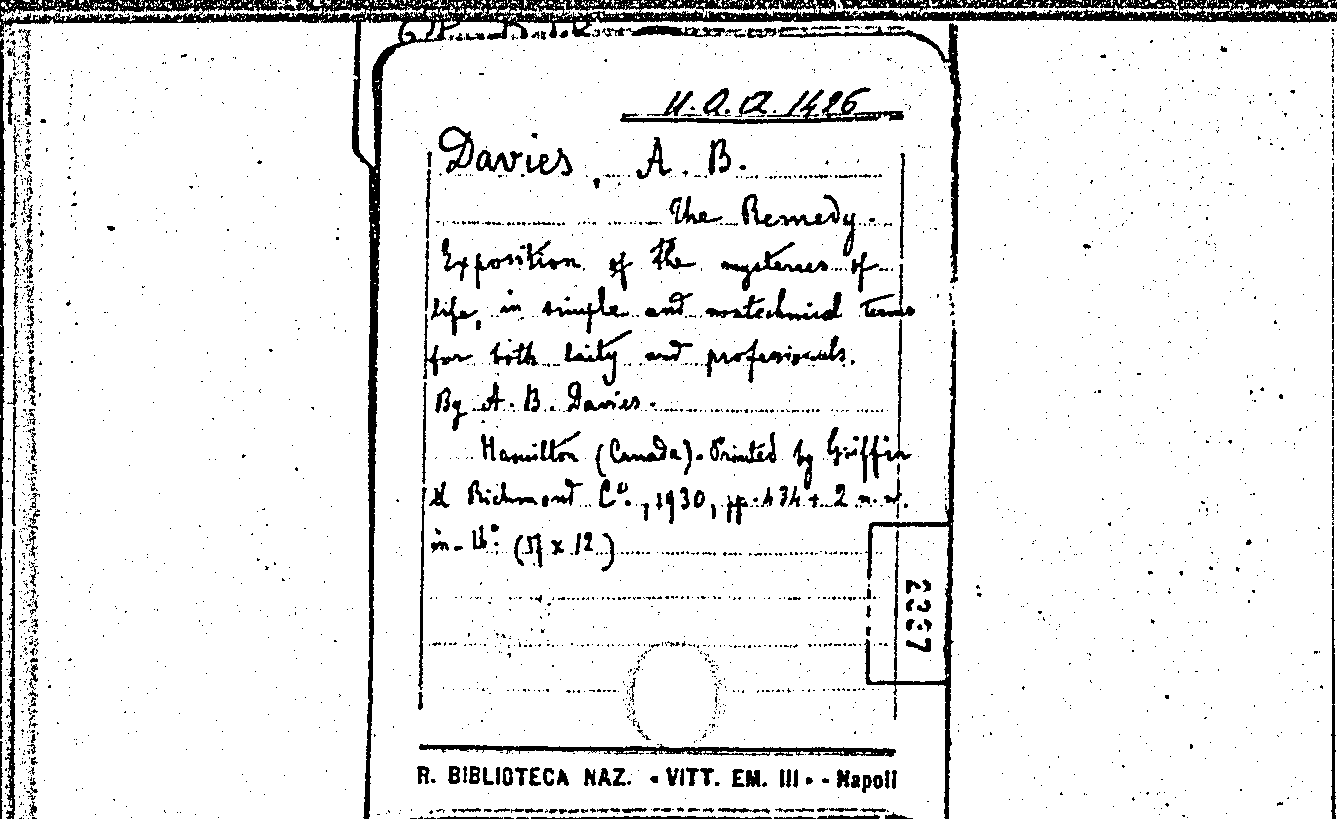 U.A.A. 1426
Davies, A. B.
The Remedy.
Exposition of the mysteries of
life, in simple and nontechnical terms
for both laity and professionals.
By A. B. Davies.
Hamilton (Canada). Printed by Griffin
& Richmond Co., 1930, pp. 434 + 2 n. n.
in-16°. (17 x 12)
2337
R. BIBLIOTECA NAZ. «VITT. EM. III» - Napoli